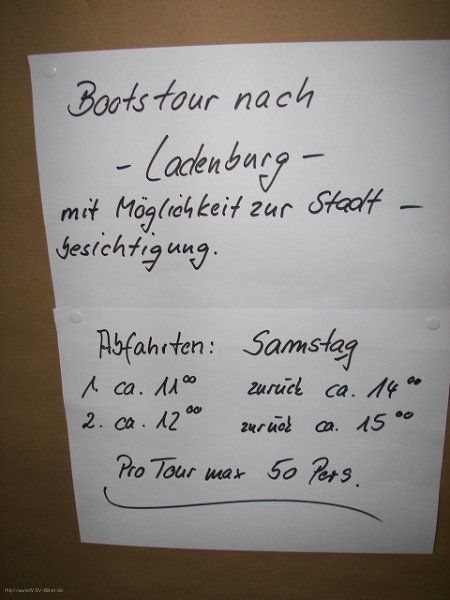 Bootstour nach
- Ladenburg -
mit Möglichkeit zur Stadt -
besichtigung.
Abfahrten: Samstag
1. ca. 11⁰⁰ zurück ca. 14⁰⁰
2. ca. 12⁰⁰ zurück ca. 15⁰⁰
Pro Tour max 50 Pers.
http://www.WSV-Biker.de